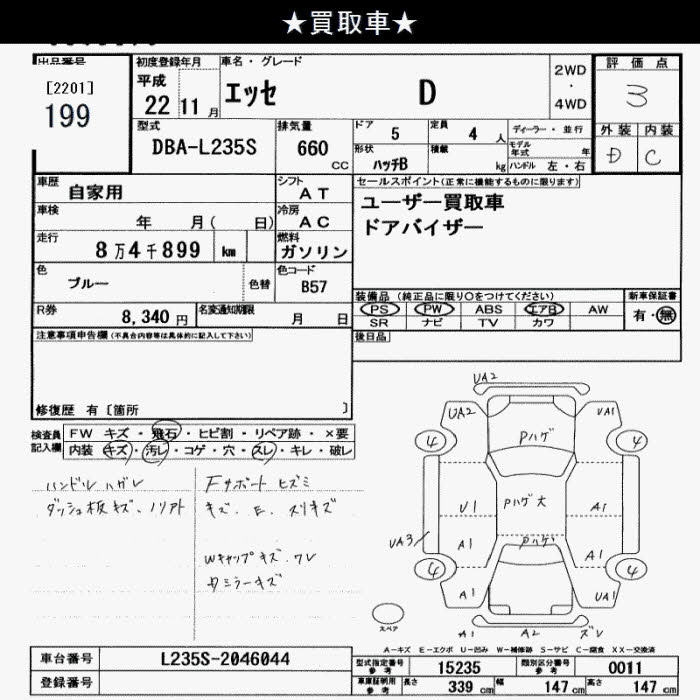 ★買取車★
出品番号
[2201]
199
初度登録年月
平成
22 11 月
車名・グレード
エッセ D
2WD
・
4WD
評価点
3
外装 内装
D C
型式
DBA-L235S
排気量
660 CC
ドア 5
定員 4 人
ディーラー・並行
モデル年式 年
形状 ハッチB
積載 kg
ハンドル 左・右
車歴 自家用
シフト AT
車検 年 月( 日)
冷房 AC
走行 8万4千899 km
燃料 ガソリン
色 ブルー 色替
色コード B57
R券 8,340 円
名変通知期限 月 日
セールスポイント(正常に機能するものに限ります)
ユーザー買取車
ドアバイザー
装備品 (純正品に限り○をつけてください)
新車保証書
PS PW ABS エアB AW
SR ナビ TV カワ
有・無
後日品
注意事項申告欄(不具合内容等は具体的に記入して下さい)
修復歴 有〔箇所 〕
検査員記入欄
FW キズ・飛石・ヒビ割・リペア跡・×要
内装 キズ・汚レ・コゲ・穴・スレ・キレ・破レ
ハンドル ハガレ
ダッシュ板キズ、ノリアト
Fサポート ヒズミ
キズ、E、スリキズ
Wキャップキズ、ワレ
タミラーキズ
UA2
UA2 UA1
4 Pハゲ 4
U1 Pハゲ大 A1
UA3 A1 Pハゲ A1
4 4
A1 UA1
スペア
A1 A2 ズレ
A-キズ E-エクボ U-凹み W-補修跡 S-サビ C-腐食 XX-交換済
車台番号 L235S-2046044
登録番号
型式指定番号 参考 15235
類別区分番号 参考 0011
車庫証明用 参考 長さ 339 cm 幅 147 cm 高さ 147 cm